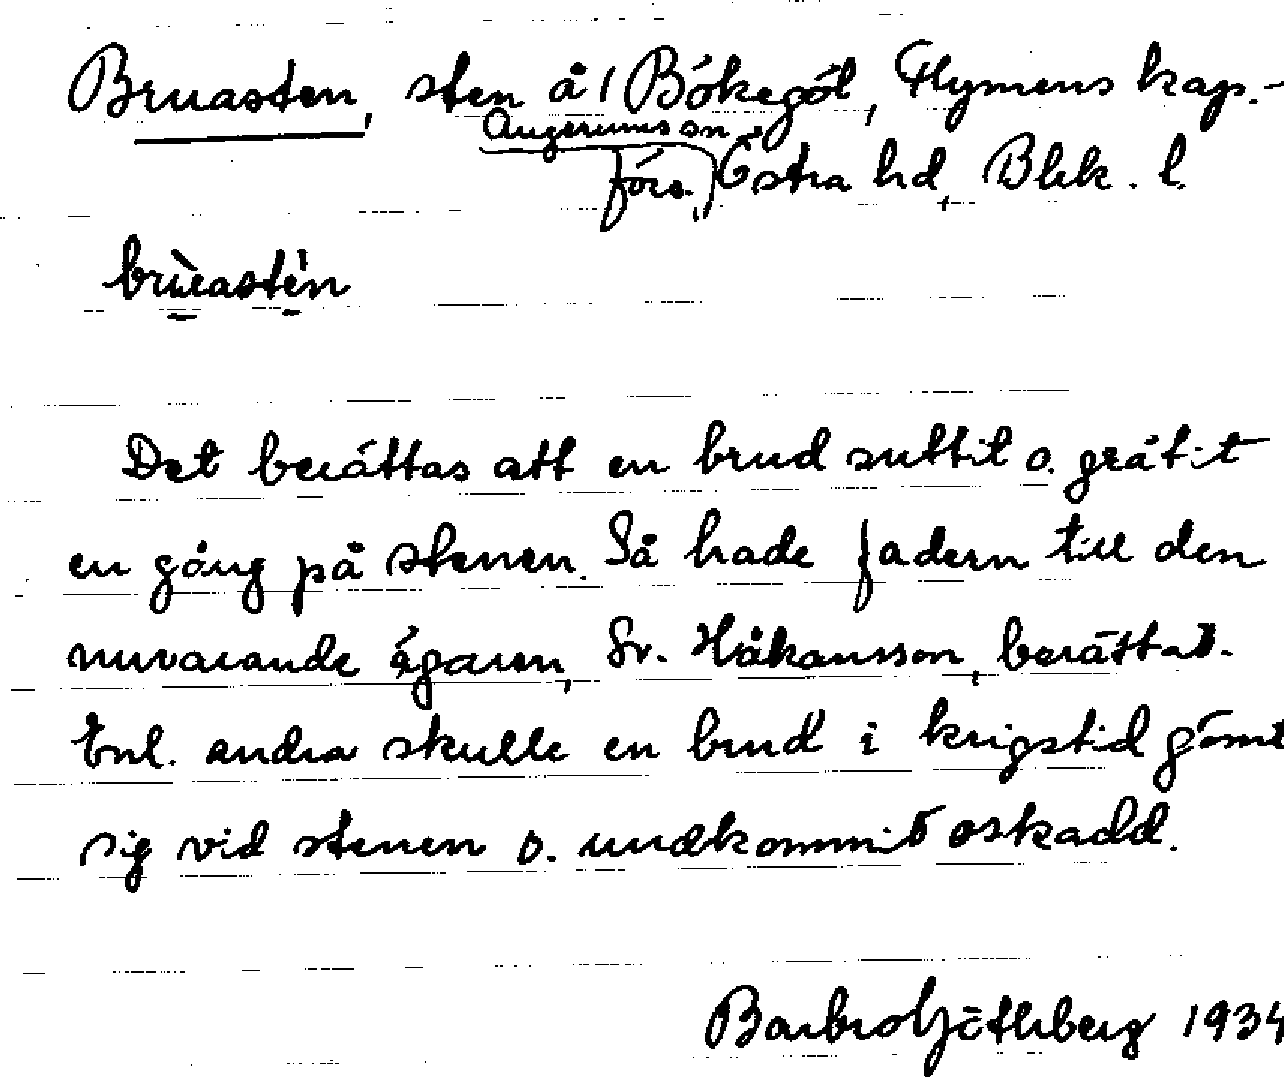 Bruasten, sten å 1 Bökegöl, Flymens kap.-
Augerums sn
förs., Östra hd, Blek. l.
brùastén
Det berättas att en brud suttit o. gråtit
en gång på stenen. Så hade fadern till den
nuvarande ägaren, Sv. Håkansson, berättat.
Enl. andra skulle en brud i krigstid gömt
sig vid stenen o. undkommit oskadd.
Barbro Götlberg 1934